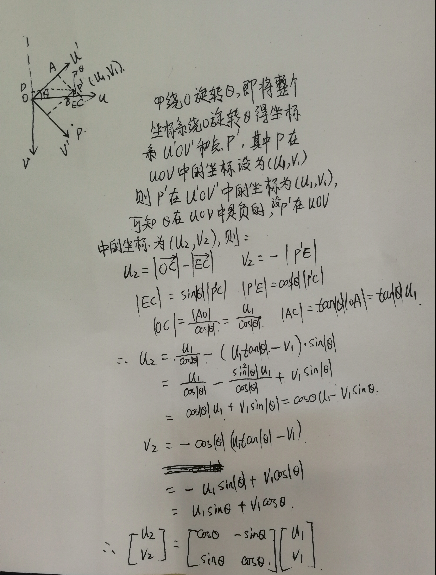 A
U'
θ
P' (U₁,V₁)
EC
O
U
V
V'
P
P绕O旋转θ,即将整个
坐标系绕O旋转θ得坐标
系U'OV'和点P',其中P在
UOV中的坐标设为(U₁,V₁)
则P'在U'OV'中的坐标为(U₁,V₁),
可知θ在UOV中是负的,设P'在UOV
中的坐标为(U₂,V₂),则:
U₂=|OC|-|EC| V₂=-|P'E|
|EC|=sin|θ||P'C| |P'E|=cos|θ||P'C|
|OC|=|AO|/cos|θ|=U₁/cos|θ| |AC|=tan|θ||OA|=tan|θ|U₁
∴ U₂=U₁/cos|θ|-(U₁tan|θ|-V₁)·sin|θ|
=U₁/cos|θ|-sin²|θ|U₁/cos|θ|+V₁sin|θ|
=cos|θ|U₁+V₁sin|θ|=cosθU₁-V₁sinθ
V₂=-cos|θ|(U₁tan|θ|-V₁)
=-U₁sin|θ|+V₁cos|θ|
=U₁sinθ+V₁cosθ
∴ [U₂ V₂]=[cosθ -sinθ sinθ cosθ][U₁ V₁]